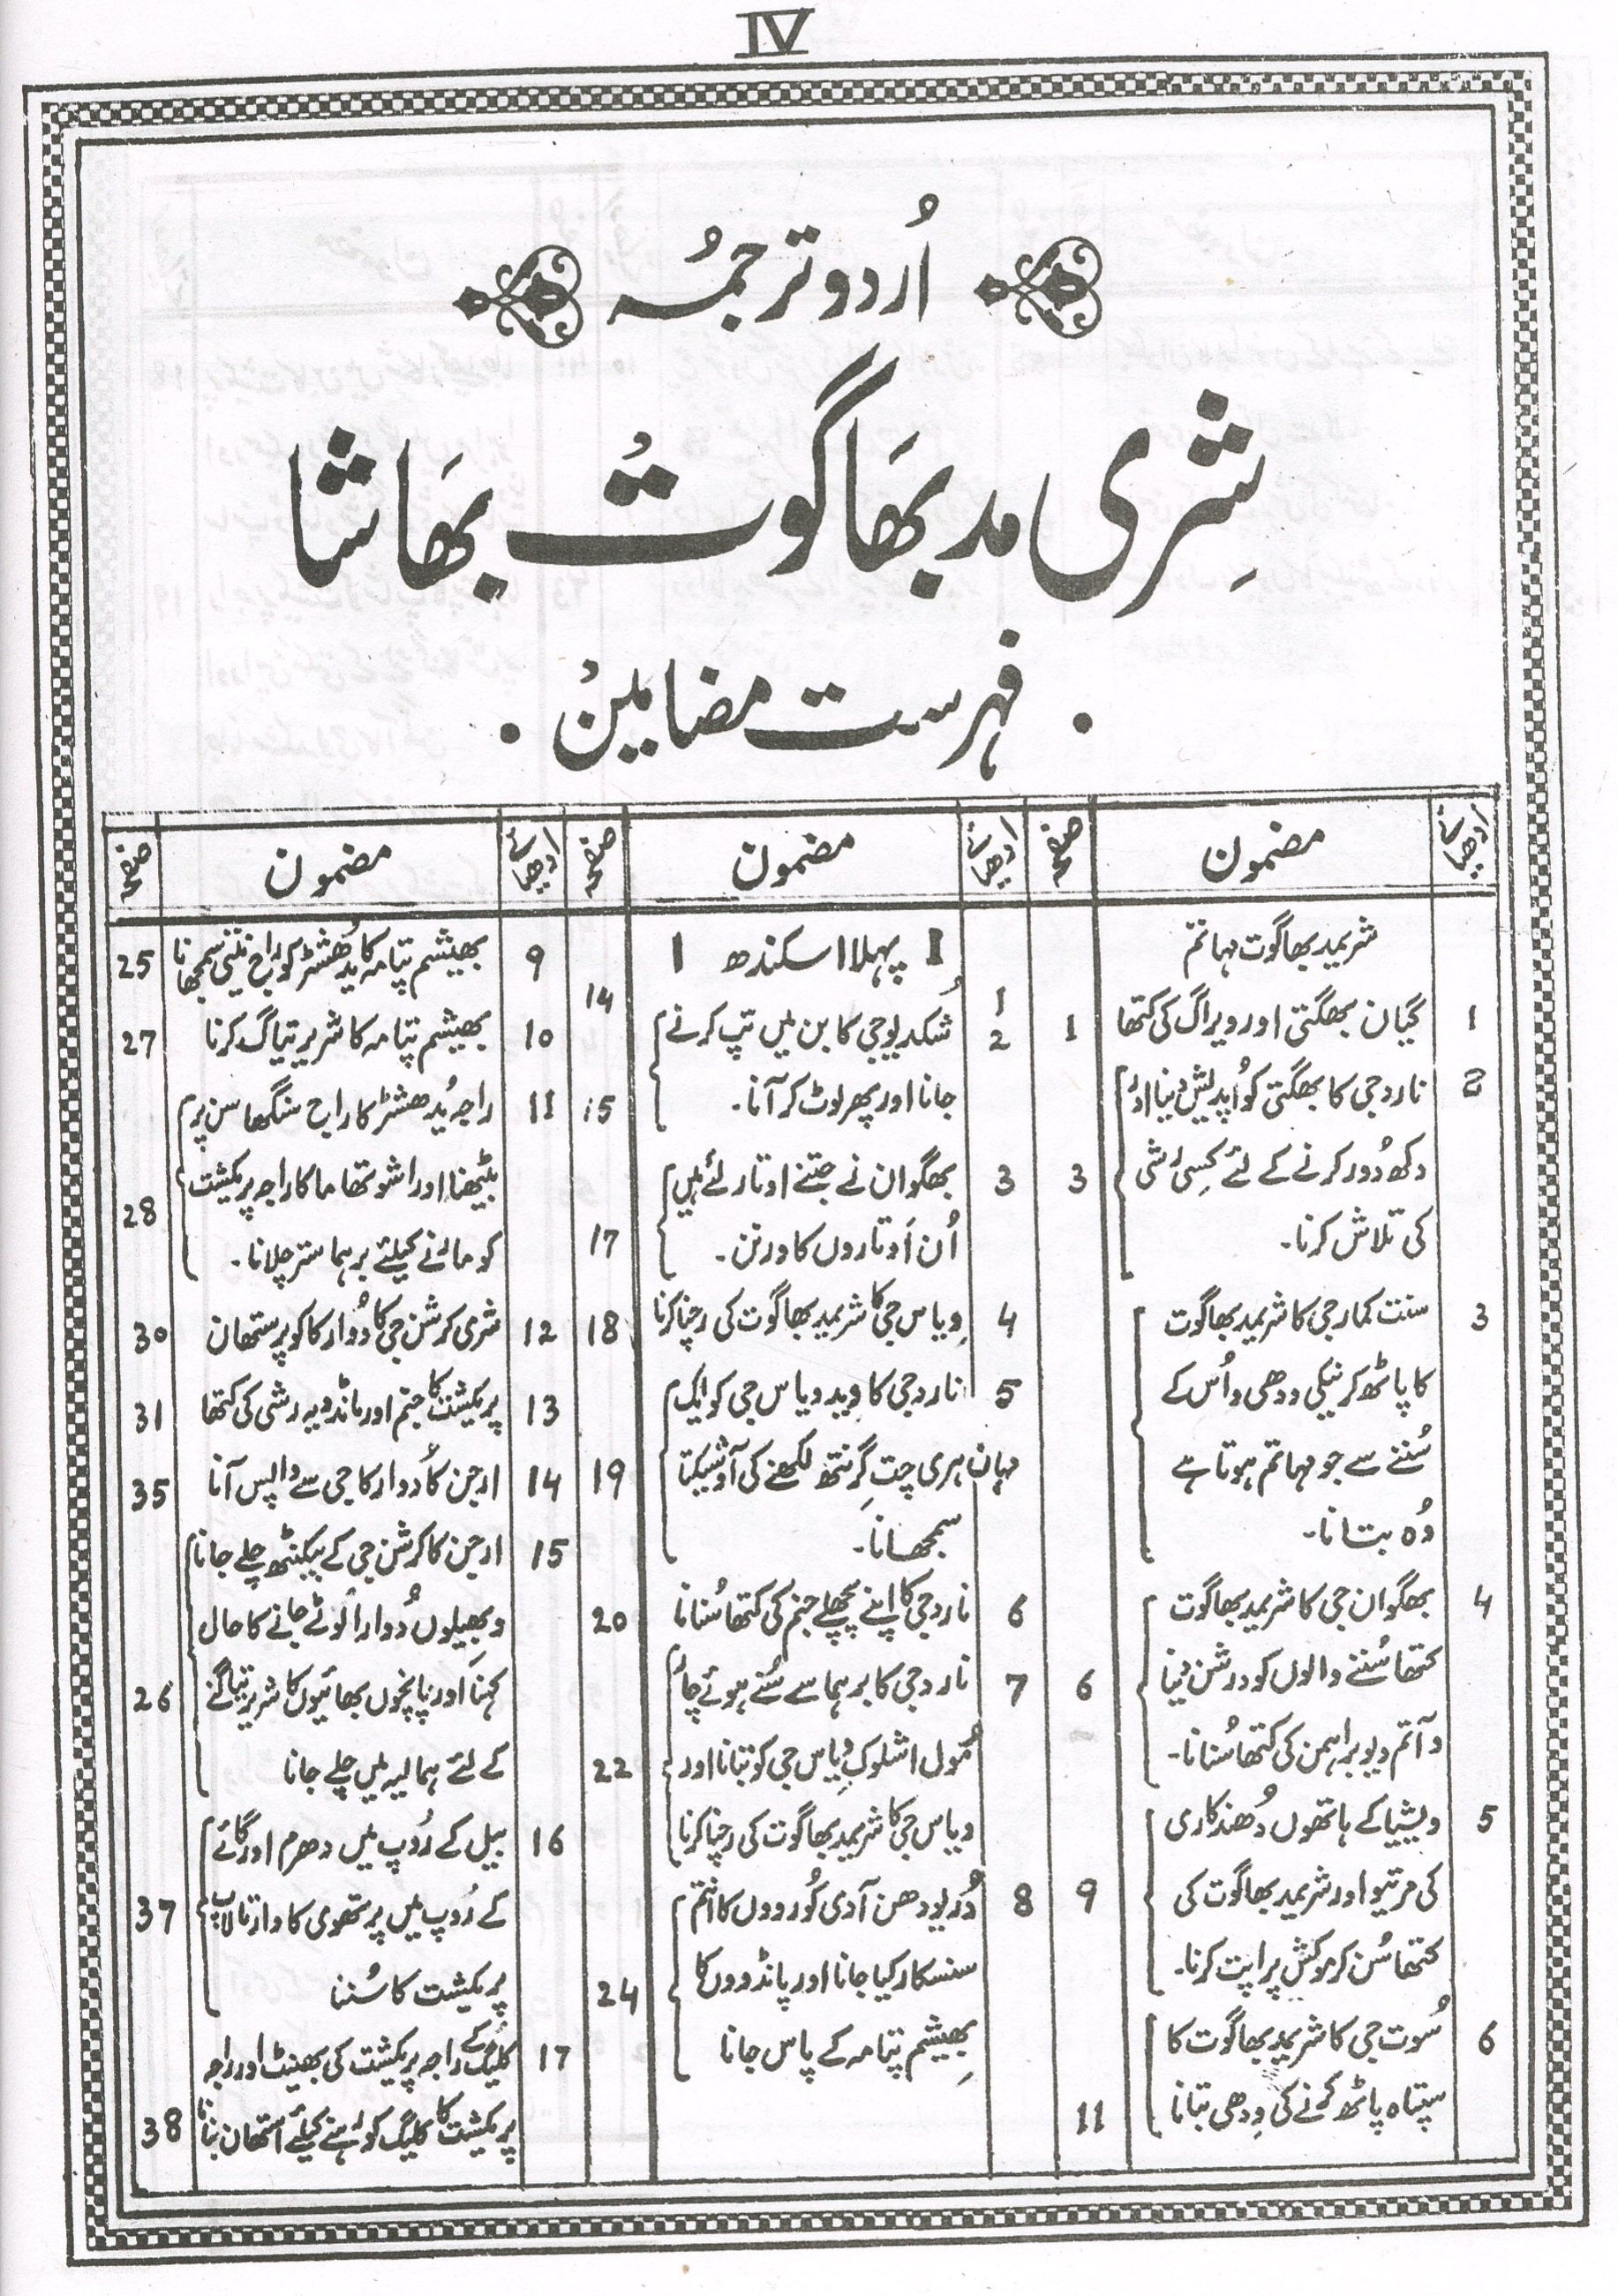 IV
اُردو ترجمہُ
شِری مد بھَاگوتُ بھَاشا
فہرست مضامینُ
ادھیائے مضمون صفحہ
شریمد بھاگوت مہاتم
1 گیان بھگتی اور ویراگ کی کتھا 1
2 ناردجی کا بھگتی کو اُپدیش دینا اور
دکھ دُور کرنے کے لئے کِسی رشی 3
کی تلاش کرنا۔
3 سنت کمارجی کا شریمد بھاگوت
کا پاٹھ کرنیکی ودھی و اُس کے
سُننے سے جو مہاتم ہوتا ہے
وُہ بتانا۔
4 بھگوان جی کا شریمد بھاگوت
کتھا سُننے والوں کو درشن دینا 6
و آتم دیو براہمن کی کتھا سُنانا۔
5 ویشیا کے ہاتھوں دُھندکاری
کی مرتیو اور شریمد بھاگوت کی 9
کتھا سُن کر موکش پراپت کرنا۔
6 سُوت جی کا شریمد بھاگوت کا
سپتاہ پاٹھ کرنے کی وِدھی بتانا 11
ادھیائے مضمون صفحہ
1 پہلا اسکندھ 1
1 14
2 شُکدیوجی کا بن میں تپ کرنے
جانا اور پھر لوٹ کر آنا۔ 15
3 بھگوان نے جتنے اوتار لئے ہیں
اُن اَوتاروں کا ورنن۔ 17
4 وِیاس جی کا شریمد بھاگوت کی رچنا کرنا 18
5 ناردجی کا وید ویاس جی کو ایک
مہان ہری چتِ گرنتھ لکھنے کی آوشیکتا 19
سمجھانا۔
6 ناردجی کا اپنے پچھلے جنم کی کتھا سُنانا 20
7 ناردجی کا برہما سے سُنے ہوئے چار
مُول اشلوک وِیاس جی کو بتانا اور 22
ویاس جی کا شریمد بھاگوت کی رچنا کرنا
8 دُریودھن آدی کُورووں کا انتم
سنسکار کیا جانا اور پانڈووں کا 24
بِھیشم پتامہ کے پاس جانا
ادھیائے مضمون صفحہ
9 بھیشم پتامہ کا یدُھشٹر کو راج نیتی سمجھانا 25
10 بھیشم پتامہ کا شریر تیاگ کرنا 27
11 راجہ یُدھشٹر کا راج سنگھاسن پر
بیٹھنا اور اشوتھاما کا راجہ پریکشت 28
کو مارنے کیلئے برہما ستر چلانا۔
12 شری کرشن جی کا دُوارکا کو پرستھان 30
13 پریکشت کا جنم اور مانڈویہ رشی کی کتھا 31
14 ارجن کا دُوارکا جی سے واپس آنا 35
15 ارجن کا کرشن جی کے بیکنٹھ چلے جانا
و بھیلوں دُوارا لُوٹے جانے کا حال
کہنا اور پانچوں بھائیوں کا شریر تیاگنے 26
کے لئے ہمالیہ میں چلے جانا
16 بیل کے رُوپ میں دھرم اور گائے
کے رُوپ میں پرتھوی کا وارتالاپ 37
پریکشت کا سُننا
17 کلیُگ کے راجہ پریکشت کی بھینٹ اور راجہ
پریکشت کا کلیگ کو رہنے کیلئے استھان بتانا 38